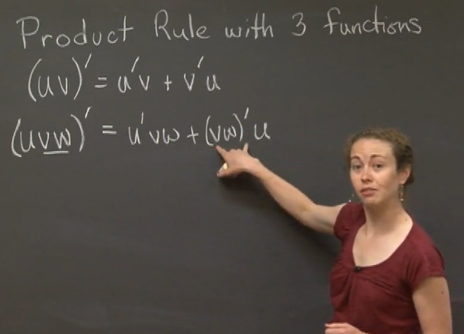 Product Rule with 3 functions
(uv)' = u'v + v'u
(uvw)' = u'vw + (vw)'u